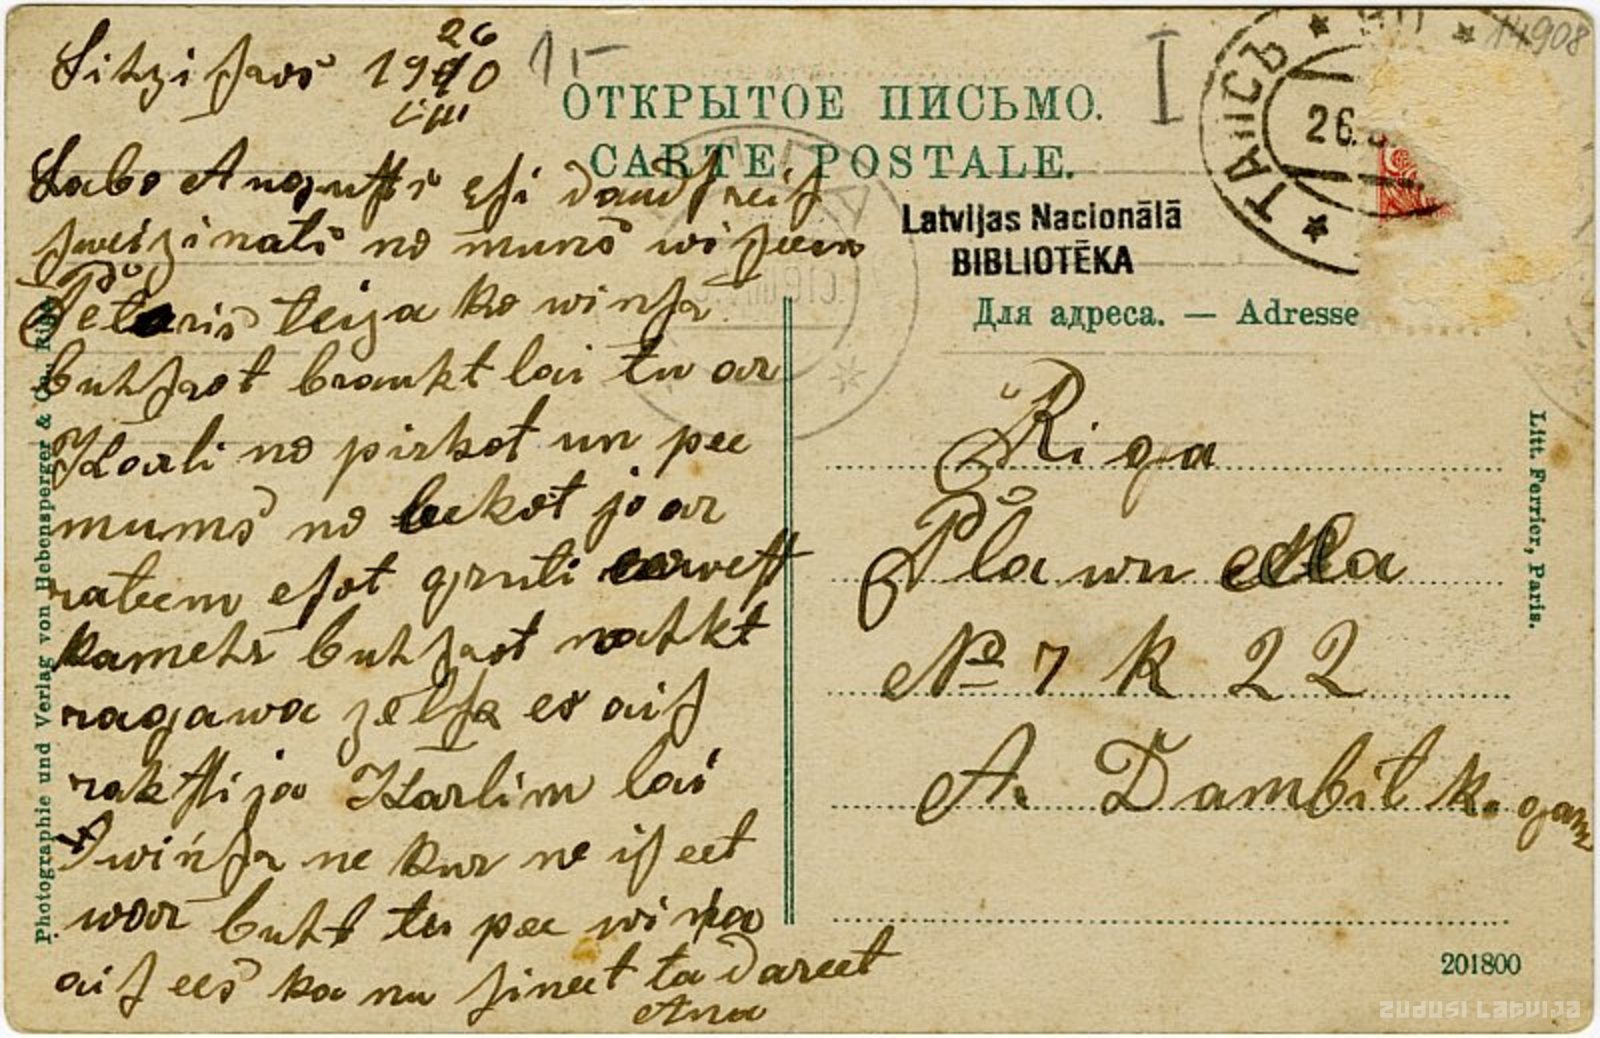 26
1910
III
1-
I
14908
ОТКРЫТОЕ ПИСЬМО.
CARTE POSTALE.
ТАЛСЪ
26.
Latvijas Nacionālā
BIBLIOTĒKA
Для адреса. — Adresse
Labo Augusti esi daudsreis
sweizinats no mums wiseem
Peteris teiza ka winsch
buhschot braukt lai tu ar
Karli no pirkot un pee
mums no leekot jo ar
rateem esot gruti west
kamehr buhschot nahkt
ragawa zelsch es ais
rakstija Karlim lai
winsch ne kur ne iseet
war buht tu pee wina
aisees ka nu sineet ta dareet
Ana
Riga
Plawu eela
№ 7 k 22
A. Dambit k. gam
Photographie und Verlag von Hebensperger & Co., Riga
Litt. Ferrier, Paris.
201800
ZUDUSI LATVIJA